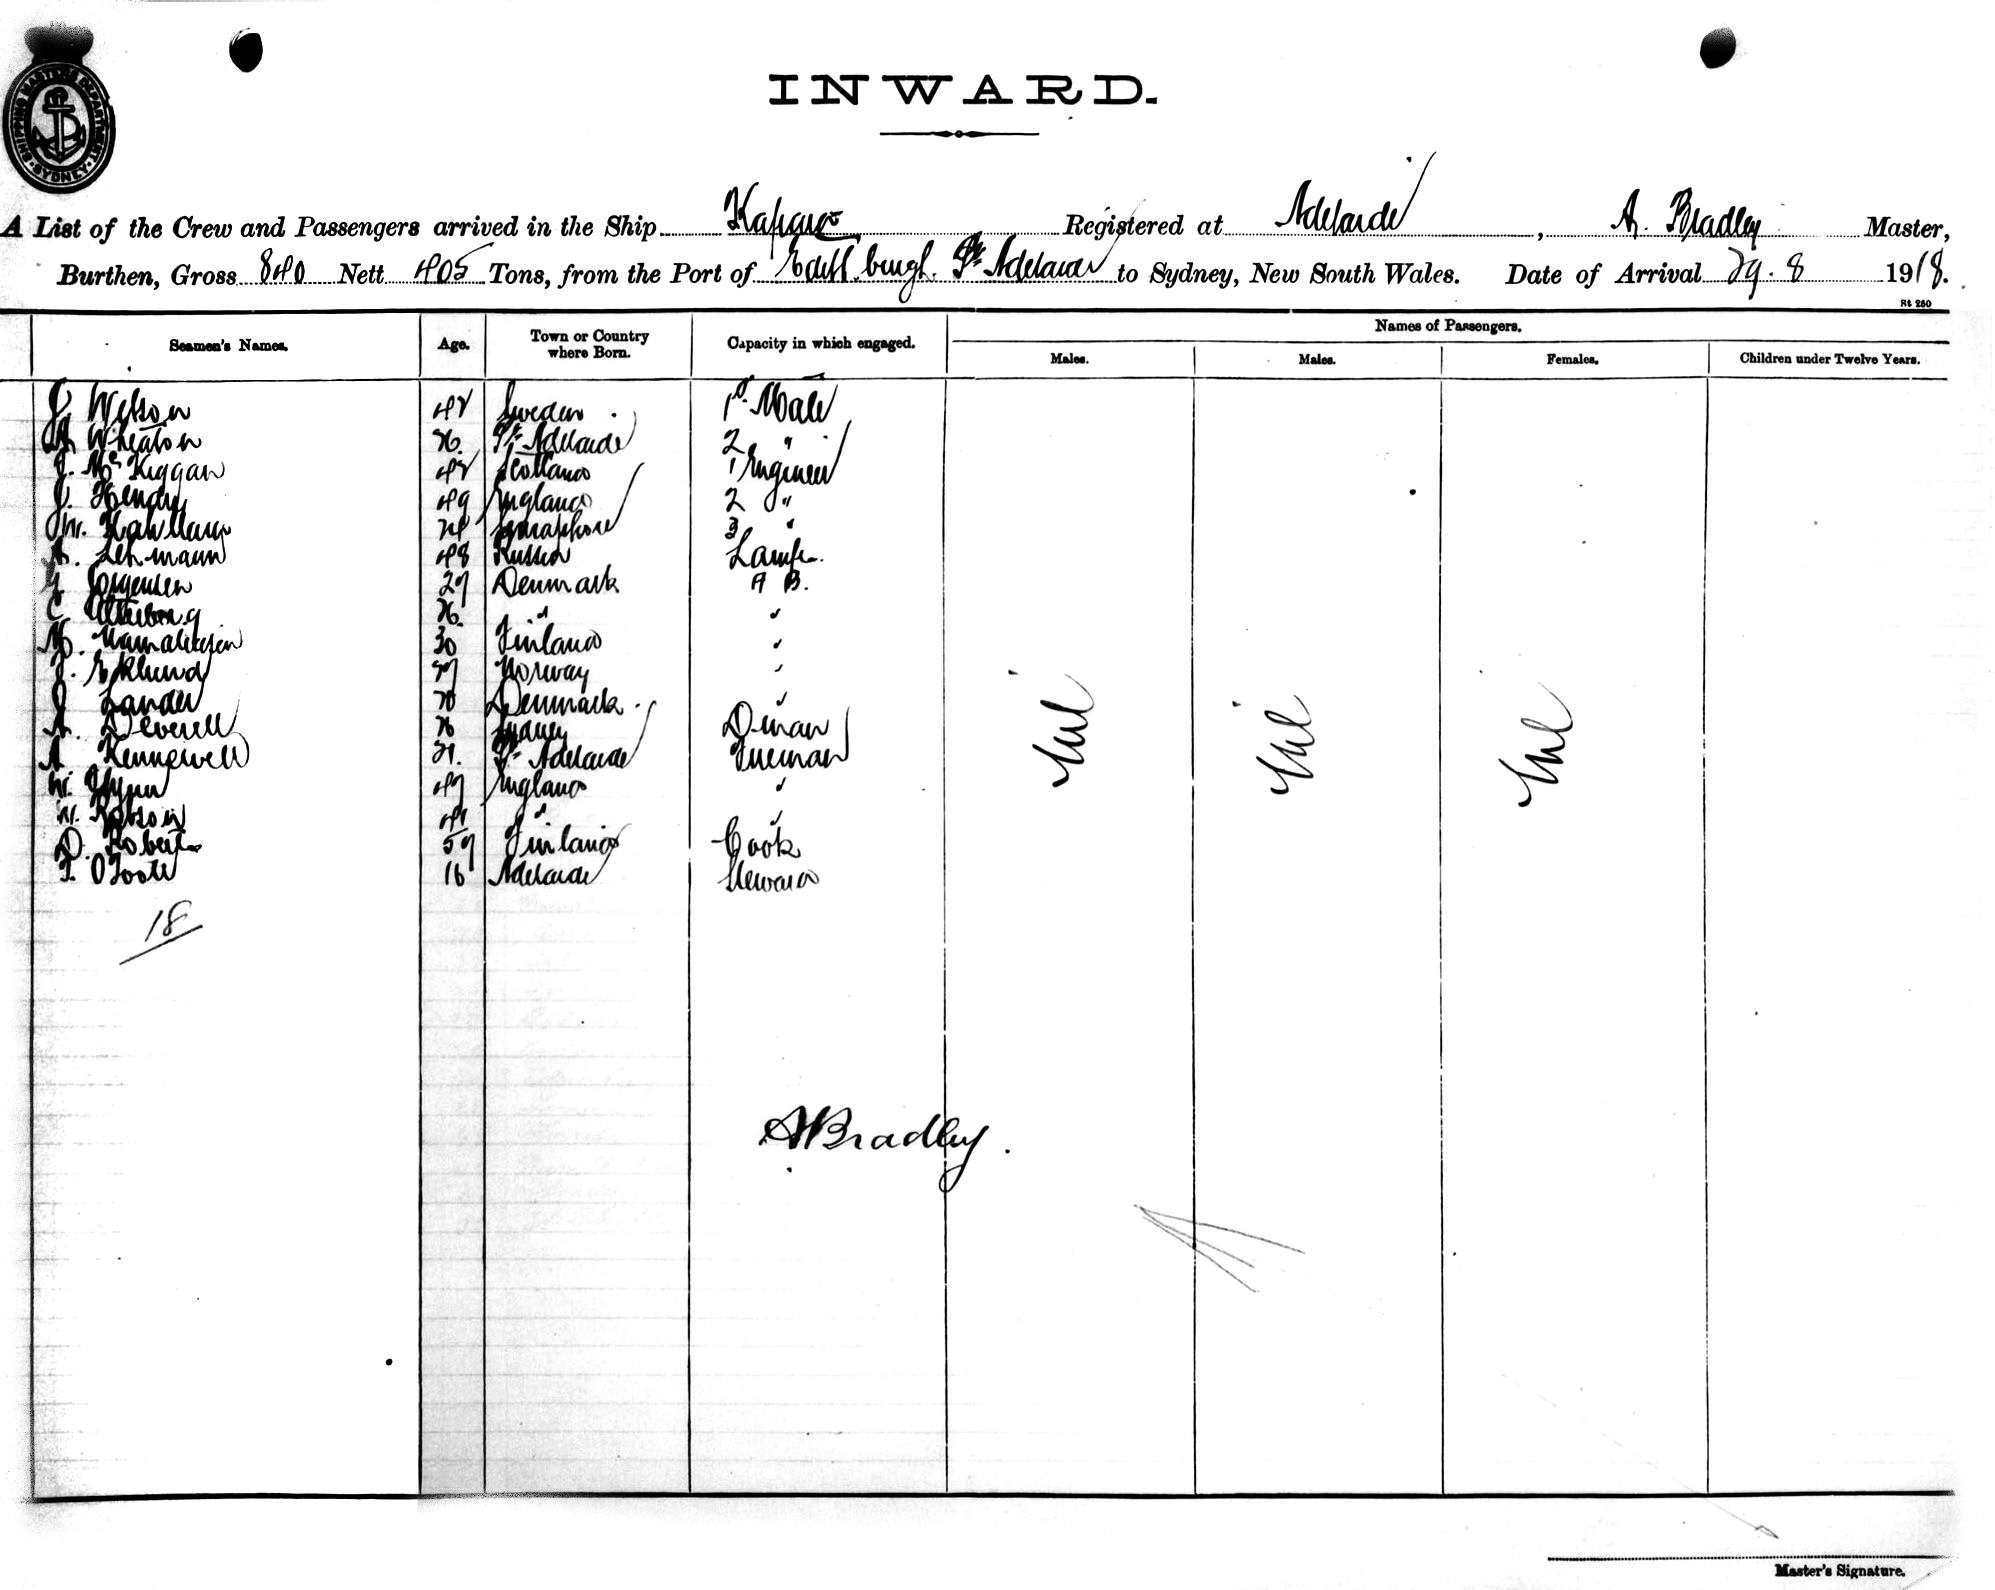 SHIPPING MASTER'S DEPARTMENT · SYDNEY ·
INWARD.
A List of the Crew and Passengers arrived in the Ship Registered at Adelaide, A. Bradley Master,
Burthen, Gross 840 Nett 405 Tons, from the Port of Pt Adelaide to Sydney, New South Wales. Date of Arrival 29. 8 1918.
St 250
Seamen's Names. Age. Town or Country where Born. Capacity in which engaged. Names of Passengers.
Males. Males. Females. Children under Twelve Years.
J. Sweden 1st Mate
A. Wheaton 26. Pt Adelaide 2 "
J. McKiggan Scotland 1 Engineer
J. Hendry 49 England 2 "
W. Semaphore 3 "
A. Lehmann 48 Russia Lamps.
Jorgensen 29 Denmark A B.
C. 26. " "
M. 30 Finland "
J. Eklund Norway "
J. Lander Denmark. "
A. Deverell 26 Sydney Dman
A Kennewell 21. Pt Adelaide Fireman
W. Flynn 49 England "
Robson 41 " "
D. Roberts 59 Finland Cook
F. OToole 16 Adelaide Steward
Nil Nil Nil
18
A Bradley.
Master's Signature.